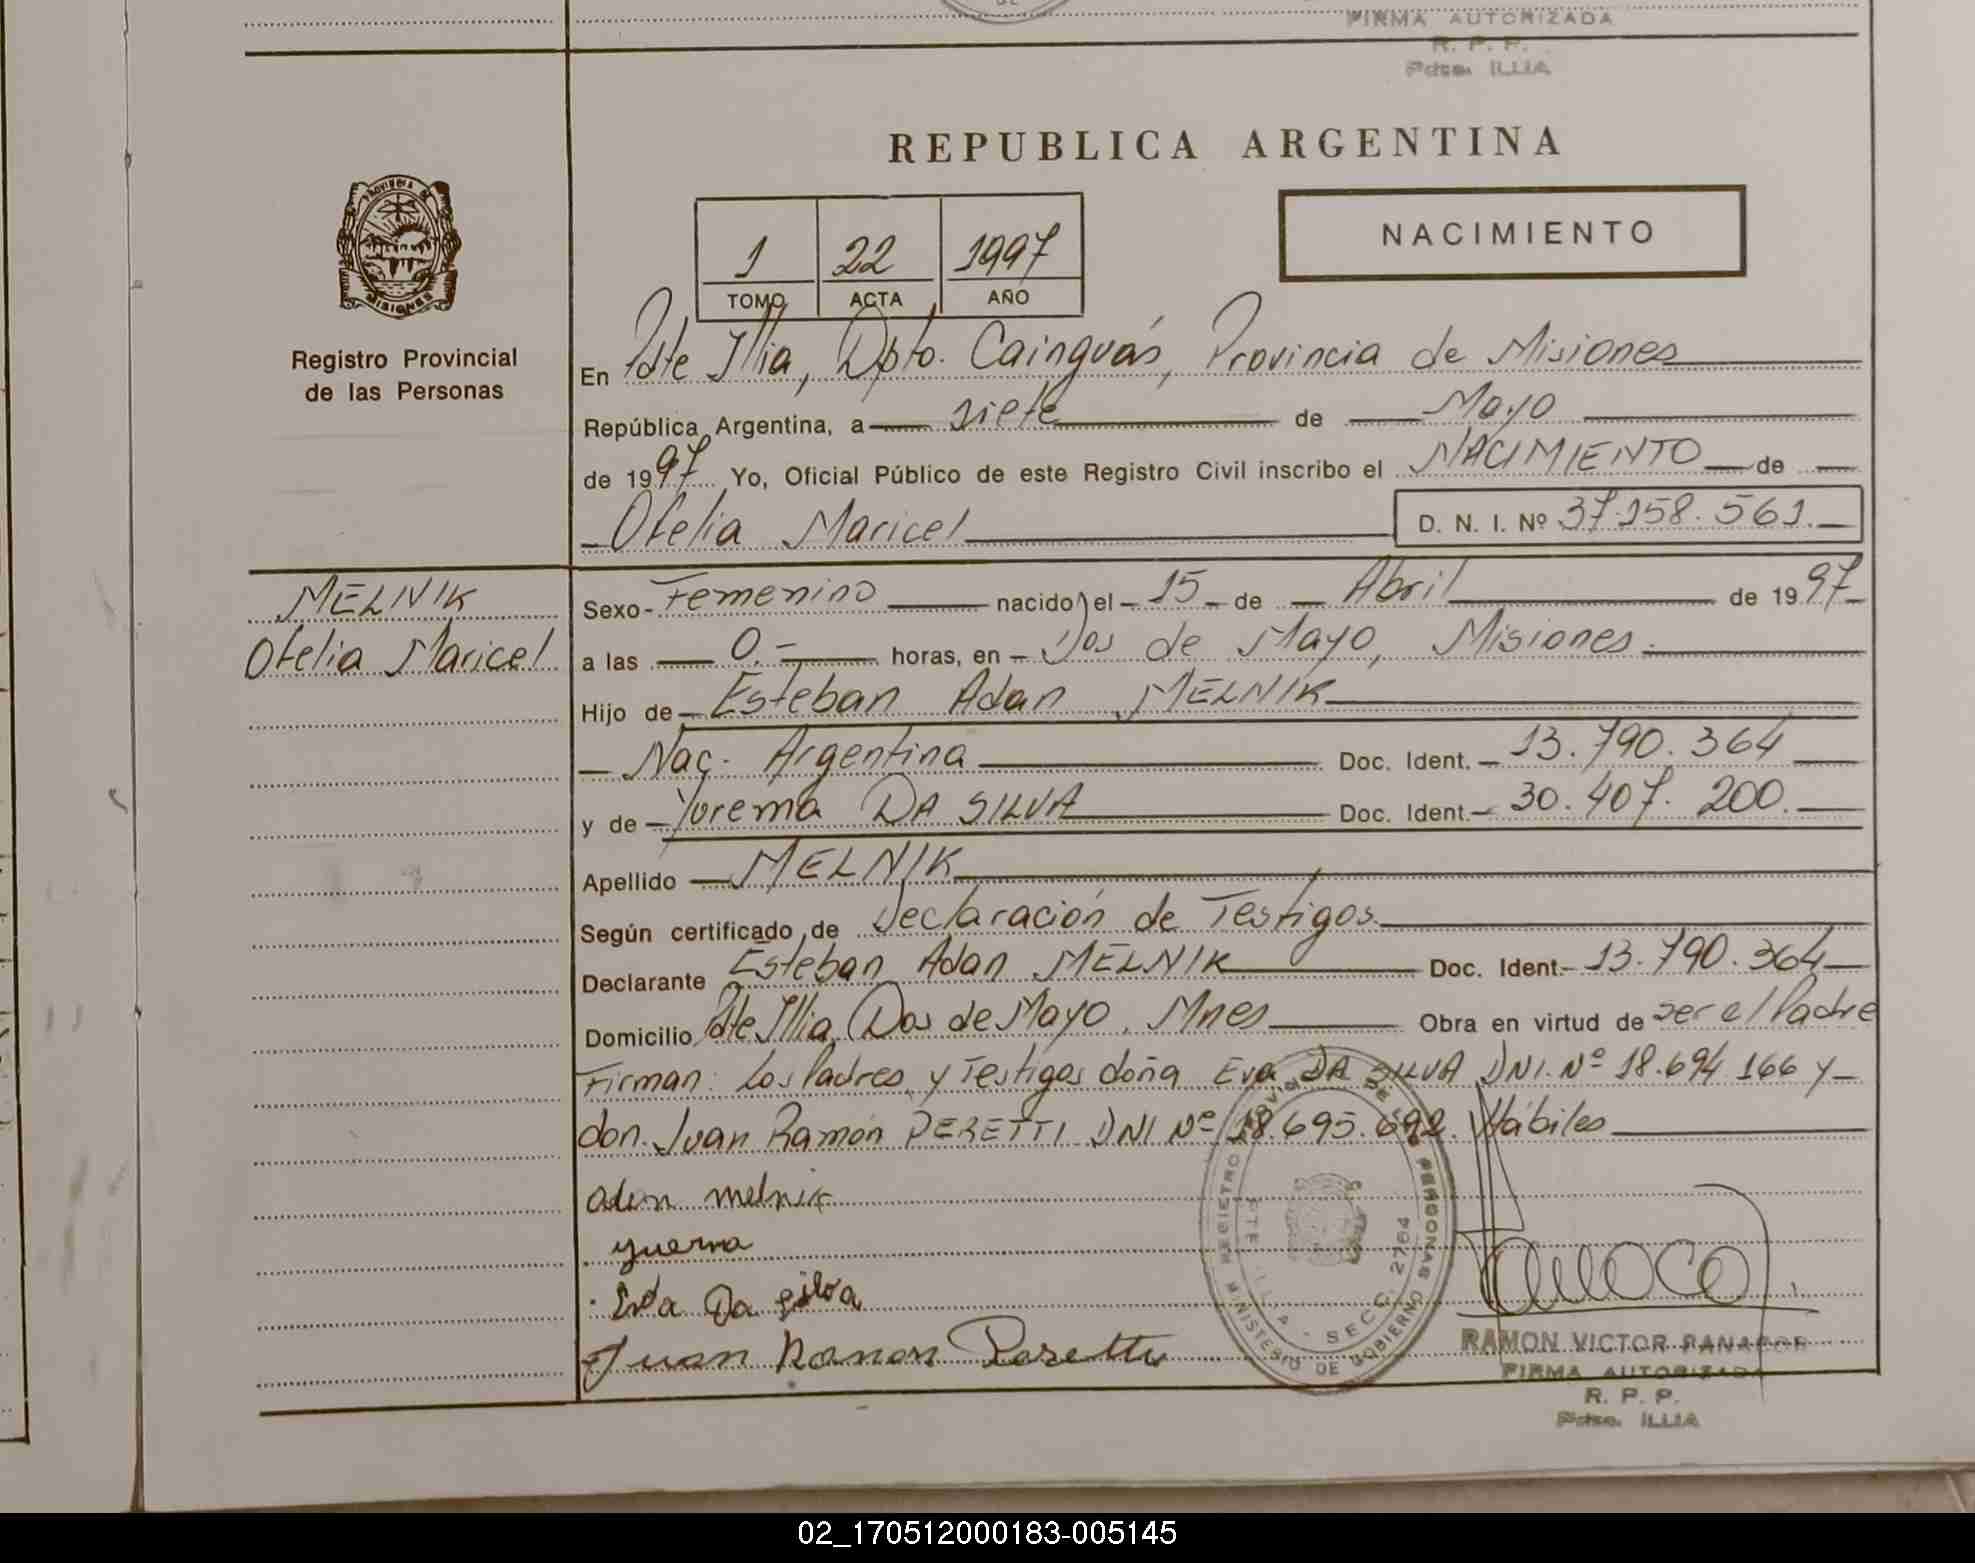 FIRMA AUTORIZADA
R. P. P.
Pdte. ILLIA
REPUBLICA ARGENTINA
NACIMIENTO
1 22 1997
TOMO ACTA AÑO
Provincia de
Misiones
Registro Provincial
de las Personas
En Pdte Illia, Dpto. Cainguás, Provincia de Misiones
República Argentina, a siete de Mayo
de 1997 Yo, Oficial Público de este Registro Civil inscribo el NACIMIENTO de
Ofelia Maricel D. N. I. Nº 37.158.561.
MELNIK
Ofelia Maricel
Sexo- Femenino nacido el 15 de Abril de 1997
a las 0.- horas, en Dos de Mayo, Misiones.
Hijo de Esteban Adan MELNIK
Nac. Argentina Doc. Ident. 13.790.364
y de Yurema DA SILVA Doc. Ident. 30.407.200.
Apellido MELNIK
Según certificado de Declaración de Testigos.
Declarante Esteban Adan MELNIK Doc. Ident. 13.790.364
Domicilio Pdte Illia, Dos de Mayo, Mnes Obra en virtud de ser el Padre
Firman: Los Padres y Testigos doña Eva DA SILVA DNI. Nº 18.694.166 y
don Juan Ramón PERETTI DNI Nº 18.695.692. Hábiles
Adan melnik
yuerma
Eva Da silva
Juan Ramon Peretti
REGISTRO PROVINCIAL DE LAS PERSONAS
MINISTERIO DE GOBIERNO
PTE. ILLIA - SECC. 2764
RAMON VICTOR
FIRMA AUTORIZADA
R. P. P.
Pdte. ILLIA
02_170512000183-005145